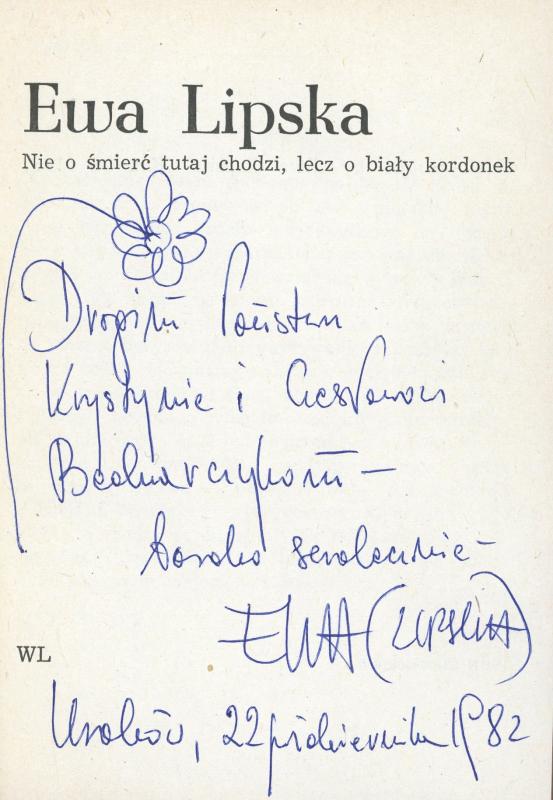 Ewa Lipska
Nie o śmierć tutaj chodzi, lecz o biały kordonek
Drogim Państwu
Krystynie i Czesławowi
Bednarczykom –
bardzo serdecznie –
EWA (LIPSKA)
WL
Kraków, 22 października 1982